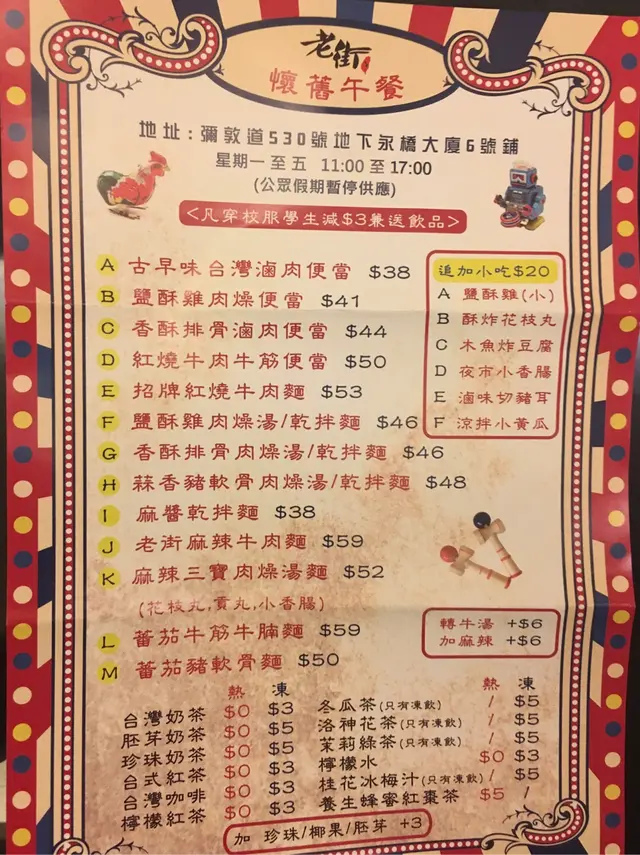 老街
懷舊午餐
地址:彌敦道530號地下永橋大廈6號鋪
星期一至五 11:00至17:00
(公眾假期暫停供應)
<凡穿校服學生減$3兼送飲品>
A 古早味台灣滷肉便當 $38
B 鹽酥雞肉燥便當 $41
C 香酥排骨滷肉便當 $44
D 紅燒牛肉牛筋便當 $50
E 招牌紅燒牛肉麵 $53
F 鹽酥雞肉燥湯/乾拌麵 $46
G 香酥排骨肉燥湯/乾拌麵 $46
H 蒜香豬軟骨肉燥湯/乾拌麵 $48
I 麻醬乾拌麵 $38
J 老街麻辣牛肉麵 $59
K 麻辣三寶肉燥湯麵 $52
(花枝丸,貢丸,小香腸)
L 蕃茄牛筋牛腩麵 $59
M 蕃茄豬軟骨麵 $50
追加小吃$20
A 鹽酥雞(小)
B 酥炸花枝丸
C 木魚炸豆腐
D 夜市小香腸
E 滷味切豬耳
F 涼拌小黃瓜
轉牛湯 +$6
加麻辣 +$6
熱 凍
台灣奶茶 $0 $3
胚芽奶茶 $0 $5
珍珠奶茶 $0 $5
台式紅茶 $0 $3
台灣咖啡 $0 $3
檸檬紅茶 $0 $3
熱 凍
冬瓜茶(只有凍飲) / $5
洛神花茶(只有凍飲) / $5
茉莉綠茶(只有凍飲) / $5
檸檬水 $0 $3
桂花冰梅汁(只有凍飲) / $5
養生蜂蜜紅棗茶 $5 /
加 珍珠/椰果/胚芽 +3